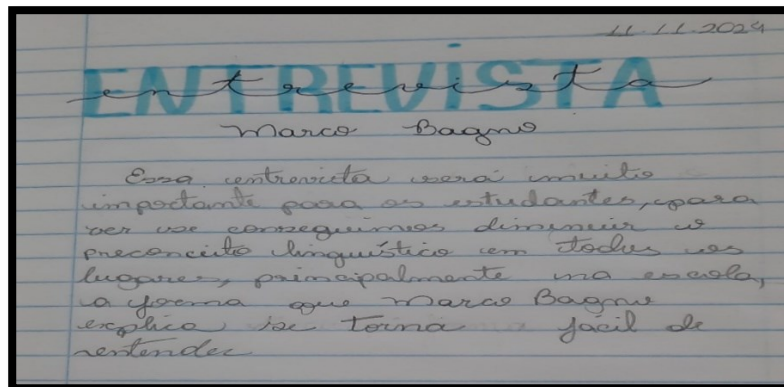 11.11.2024
ENTREVISTA
entrevista
Marco Bagno
Essa entrevista será muito
importante para os estudantes, para
ver se conseguimos diminuir o
preconceito linguístico em todos os
lugares, principalmente na escola,
a forma que Marco Bagno
explica se torna fácil de
entender